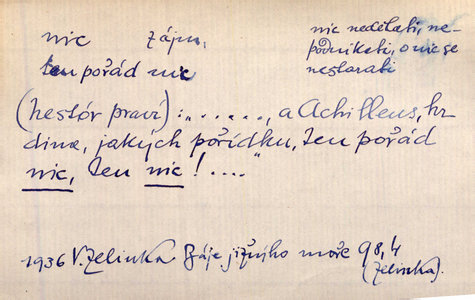 nic zájm.
ten pořád nic
nic nedělati, ne-
podnikati, o nic se
nestarati
(hestór praví): „......, a Achilleus, hr
dina, jakých pořídku, ten pořád
nic, ten nic!...."
1936 V. Zelinka Báje jižního moře 98,4
(Zelinka).